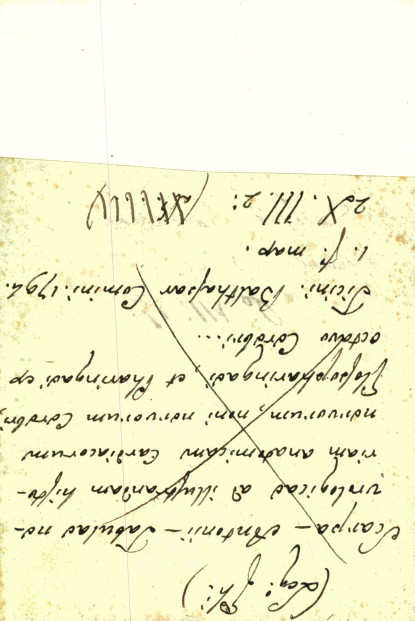 (Leg: Ph:)
Scarpa – Antonii – Tabulad ne-
vrologicad ad illustrandam histo-
riam anatomicam Cardiacorum
nervorum, noni nervorum Cerebri,
Glossopharingadi, et Pharingadi ep
octavo Cerebri...
Ticini: Balthasar Comini: 1794.
1. f. map.
2 X. III. 2: